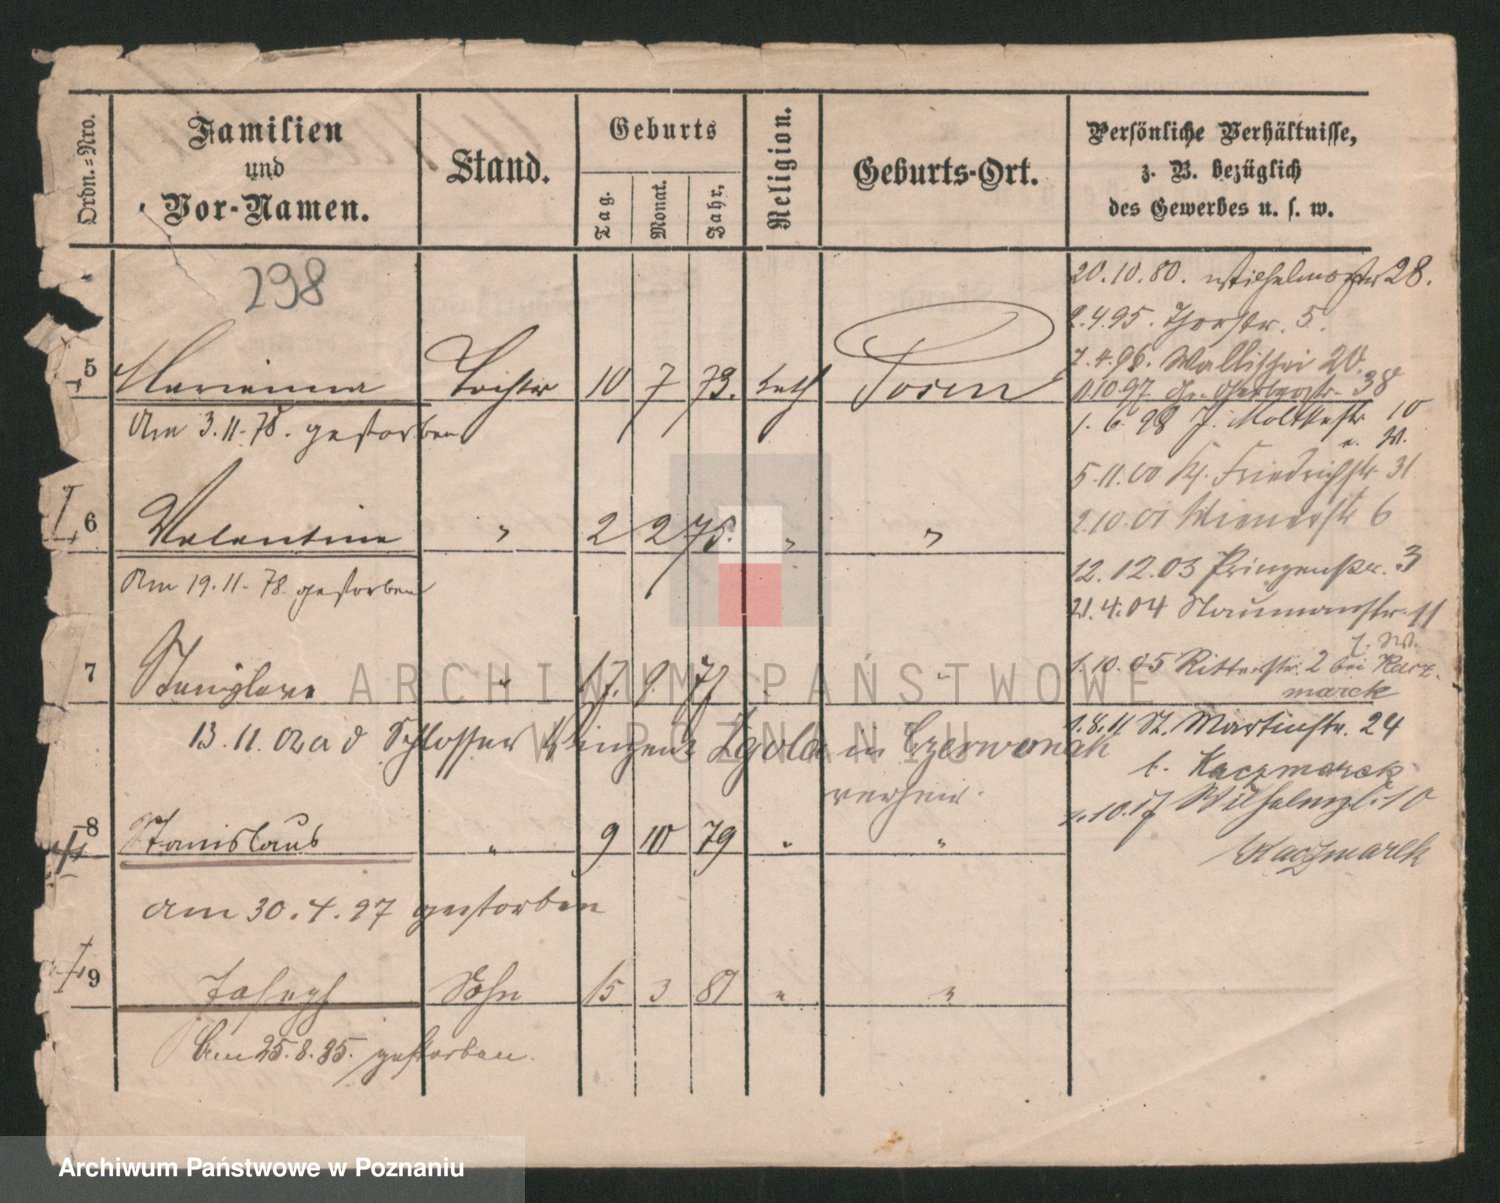 Ordn.=Nro.
Familien
und
Vor-Namen.
Stand.
Geburts
Tag.
Monat.
Jahr.
Religion.
Geburts-Ort.
Persönliche Verhältnisse,
z. B. bezüglich
des Gewerbes u. s. w.
298
20.10.80. Wilhelmsstr 28.
2.4.95. Thorstr. 5.
7.4.96. Wallischei 20.
11.10.97 Gr. Gerberstr. 38
5 Marianna Tochter 10 7 73. kath Posen
Am 3.11.78. gestorben
1.6.98 J. Moltkestr. 10
5.11.00 Friedrichstr 31
6 Valentine " 2 2 75. " "
2.10.01 Wienerstr 6
Am 19.11.78. gestorben
12.12.03 Prinzenstr. 3
21.4.04 Naumannstr. 11
7 Stanislawa " 17. 9. 77 "
1.10.05 Ritterstr. 2 bei Kacz-
marek
13.11.02 a d Schlosser Vinzent Zgola in Czerwonak
verheir.
1.8.11 St. Martinstr. 24
b. Kaczmarek
1.10.17 Wilhelmpl. 10
Kaczmarek
8 Stanislaus " 9 10 79 " "
am 30.4.97 gestorben
9 Joseph Sohn 15 3 81 " "
Am 25.8.85. gestorben.
ARCHIWUM PAŃSTWOWE
W POZNANIU
Archiwum Państwowe w Poznaniu